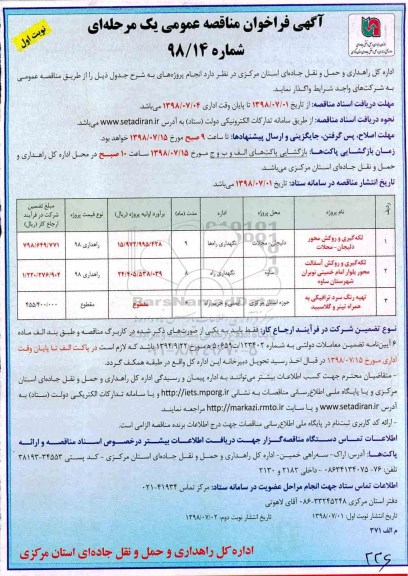 نوبت اول
آگهی فراخوان مناقصه عمومی یک مرحله‌ای
شماره ۹۸/۱۴
اداره کل راهداری و حمل و نقل جاده‌ای استان مرکزی در نظر دارد انجام پروژه‌های به شرح جدول ذیل را از طریق مناقصه عمومی
به شرکت‌های واجد شرایط واگذار نماید.
مهلت دریافت اسناد مناقصه: از تاریخ ۱۳۹۸/۰۷/۰۱ تا پایان وقت اداری ۱۳۹۸/۰۷/۰۴ می‌باشد.
نحوه دریافت اسناد مناقصه: از طریق سامانه تدارکات الکترونیکی دولت (ستاد) به آدرس www.setadiran.ir می‌باشد.
مهلت اصلاح، پس گرفتن، جایگزینی و ارسال پیشنهادها: تا ساعت ۹ صبح مورخ ۱۳۹۸/۰۷/۱۵ خواهد بود.
زمان بازگشایی پاکت‌ها: بازگشایی پاکت‌های الف و ب و ج مورخ ۱۳۹۸/۰۷/۱۵ ساعت ۱۰ صبح در محل اداره کل راهداری و
حمل و نقل جاده‌ای استان مرکزی می‌باشد.
تاریخ انتشار مناقصه در سامانه ستاد: تاریخ ۱۳۹۸/۰۷/۰۱ می‌باشد.
ردیف نام پروژه محل پروژه اداره مدت (ماه) برآورد اولیه پروژه (ریال) نوع قیمت پروژه مبلغ تضمین شرکت در فرآیند ارجاع کار (ریال)
۱ لکه‌گیری و روکش محور دلیجان- محلات دلیجان- محلات نگهداری راه‌ها ۹ ۱۵/۹۷۲/۹۹۵/۴۲۸ راهداری ۹۸ ۷۹۸/۶۴۹/۷۷۱
۲ لکه‌گیری و روکش آسفالت محور بلوار امام خمینی نوبران شهرستان ساوه ساوه نگهداری راه ۸ راهداری ۹۸
۳ تهیه رنگ سرد ترافیکی به همراه تینر و گلاسبید حوزه استان مرکزی مقطوع مقطوع ۴۵۵/۴۰۰/۰۰۰
نوع تضمین شرکت در فرآیند ارجاع کار: فقط باید به یکی از صورت‌های ذکر شده در کاربرگ مناقصه و طبق بند الف ماده
۶ آیین‌نامه تضمین معاملات دولتی به شماره ۱۲۳۴۰۲/ت۵۰۶۵۹ه مورخ ۱۳۹۴/۹/۲۲ باشد که لازم است در پاکت الف تا پایان وقت
اداری مورخ ۱۳۹۸/۰۷/۱۵ در قبال اخذ رسید تحویل دبیرخانه این اداره کل واقع در طبقه همکف گردد.
- متقاضیان محترم جهت کسب اطلاعات بیشتر می‌توانند به اداره پیمان و رسیدگی اداره کل راهداری و حمل و نقل جاده‌ای استان
مرکزی و یا پایگاه ملی اطلاع‌رسانی مناقصات به نشانی http://iets.mporg.ir و یا سامانه تدارکات الکترونیکی دولت (ستاد) به
آدرس www.setadiran.ir و یا سایت http://markazi.rmto.ir مراجعه نمایند.
- ارائه کد کاربری ثبت‌نام در پایگاه ملی اطلاع‌رسانی مناقصات جهت درج اطلاعات برنده مناقصه الزامی است.
اطلاعات تماس دستگاه مناقصه‌گزار جهت دریافت اطلاعات بیشتر درخصوص اسناد مناقصه و ارائه
پاکت‌ها: آدرس: اراک- سه‌راهی خمین- اداره کل راهداری و حمل و نقل جاده‌ای استان مرکزی - کد پستی 34553-38193
تلفن: ۷۶-۰۸۶۳۴۱۳۴۰۷۵ - داخلی ۲۱۸۲ و ۲۱۳۰
اطلاعات تماس ستاد جهت انجام مراحل عضویت در سامانه ستاد: مرکز تماس ۴۱۹۳۴-۰۲۱
دفتر استان مرکزی ۳۳۲۴۵۲۴۸-۰۸۶ آقای لاهوتی
تاریخ انتشار نوبت اول: ۱۳۹۸/۰۷/۰۱ تاریخ انتشار نوبت دوم: ۱۳۹۸/۰۷/۰۲
م الف ۳۷۱
اداره کل راهداری و حمل و نقل جاده‌ای استان مرکزی
۲۲۶